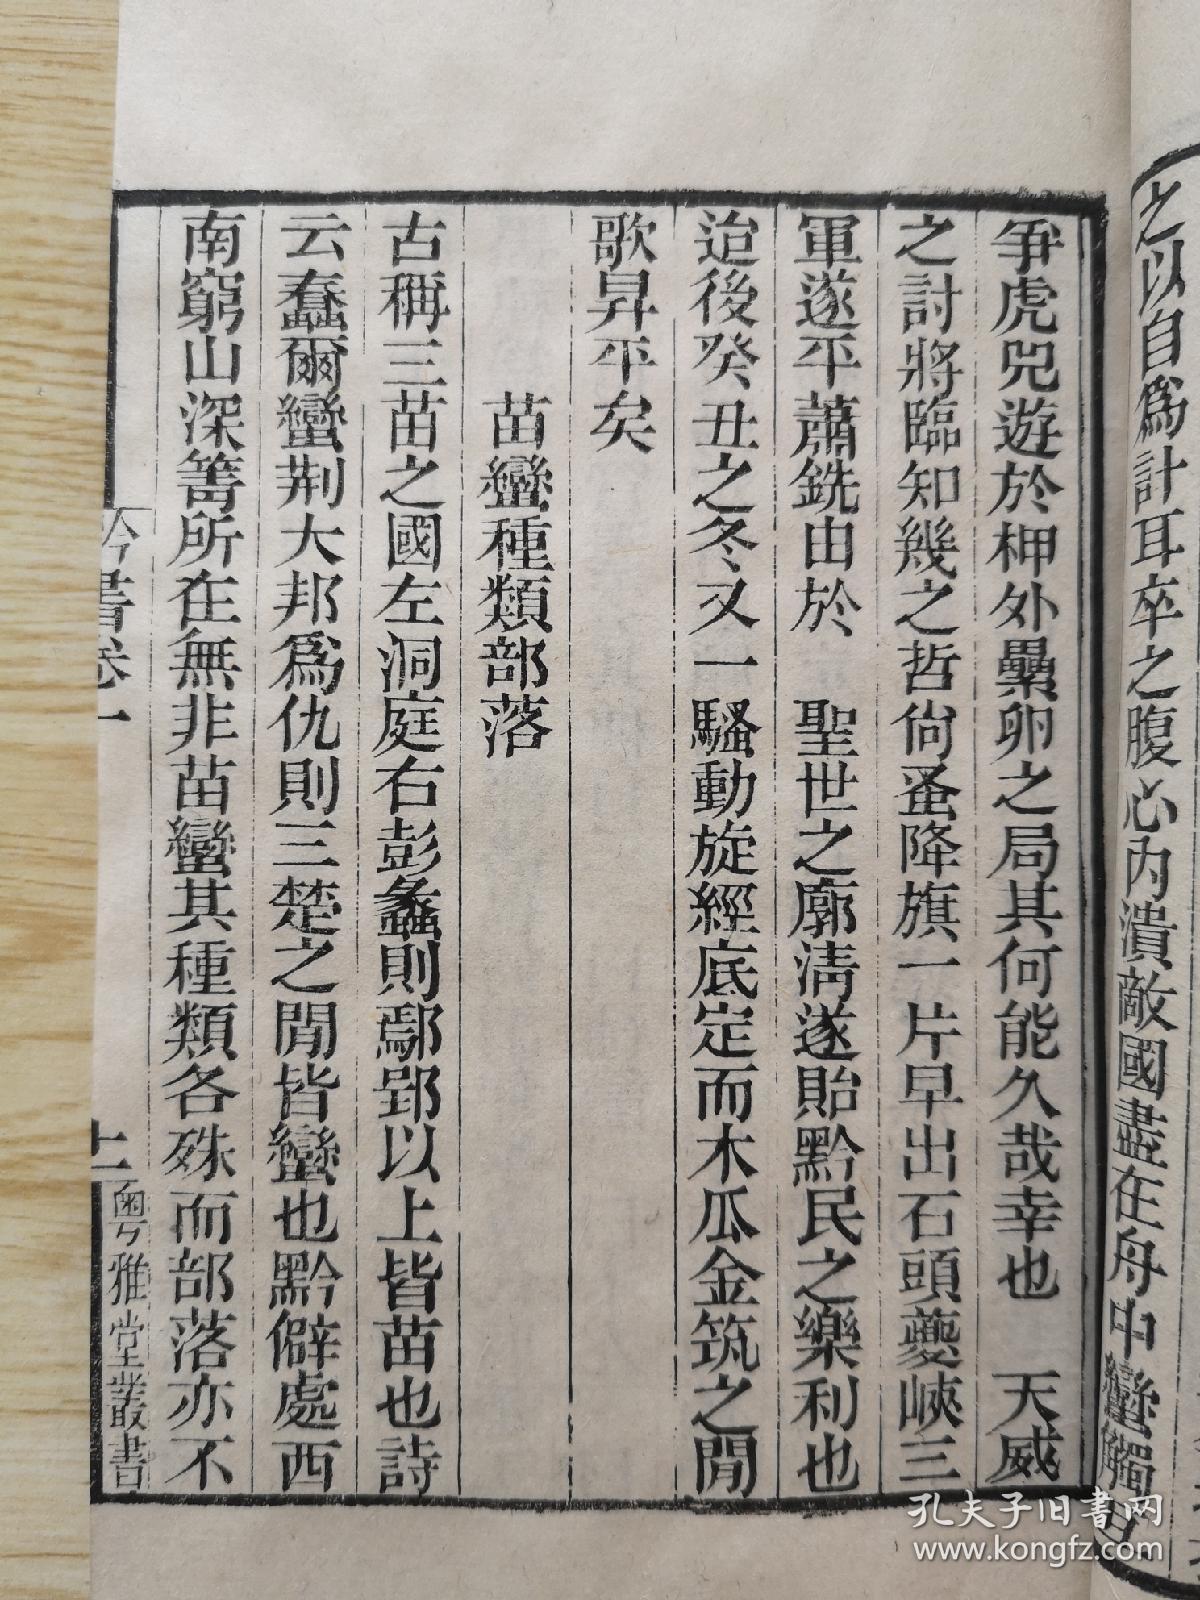 之以自爲計耳卒之腹心內潰敵國盡在舟中蠻觸
爭虎兕遊於柙外纍卵之局其何能久哉幸也　天威
之討將臨知幾之哲尙蚤降旗一片早出石頭夔峽三
軍遂平蕭銑由於　聖世之廓淸遂貽黔民之樂利也
迨後癸丑之冬又一騷動旋經底定而木瓜金筑之閒
歌昇平矣
苗蠻種類部落
古稱三苗之國左洞庭右彭蠡則鄢郢以上皆苗也詩
云蠢爾蠻荆大邦爲仇則三楚之閒皆蠻也黔僻處西
南窮山深箐所在無非苗蠻其種類各殊而部落亦不
今書卷一
粵雅堂叢書
孔夫子旧书网
www.kongfz.com